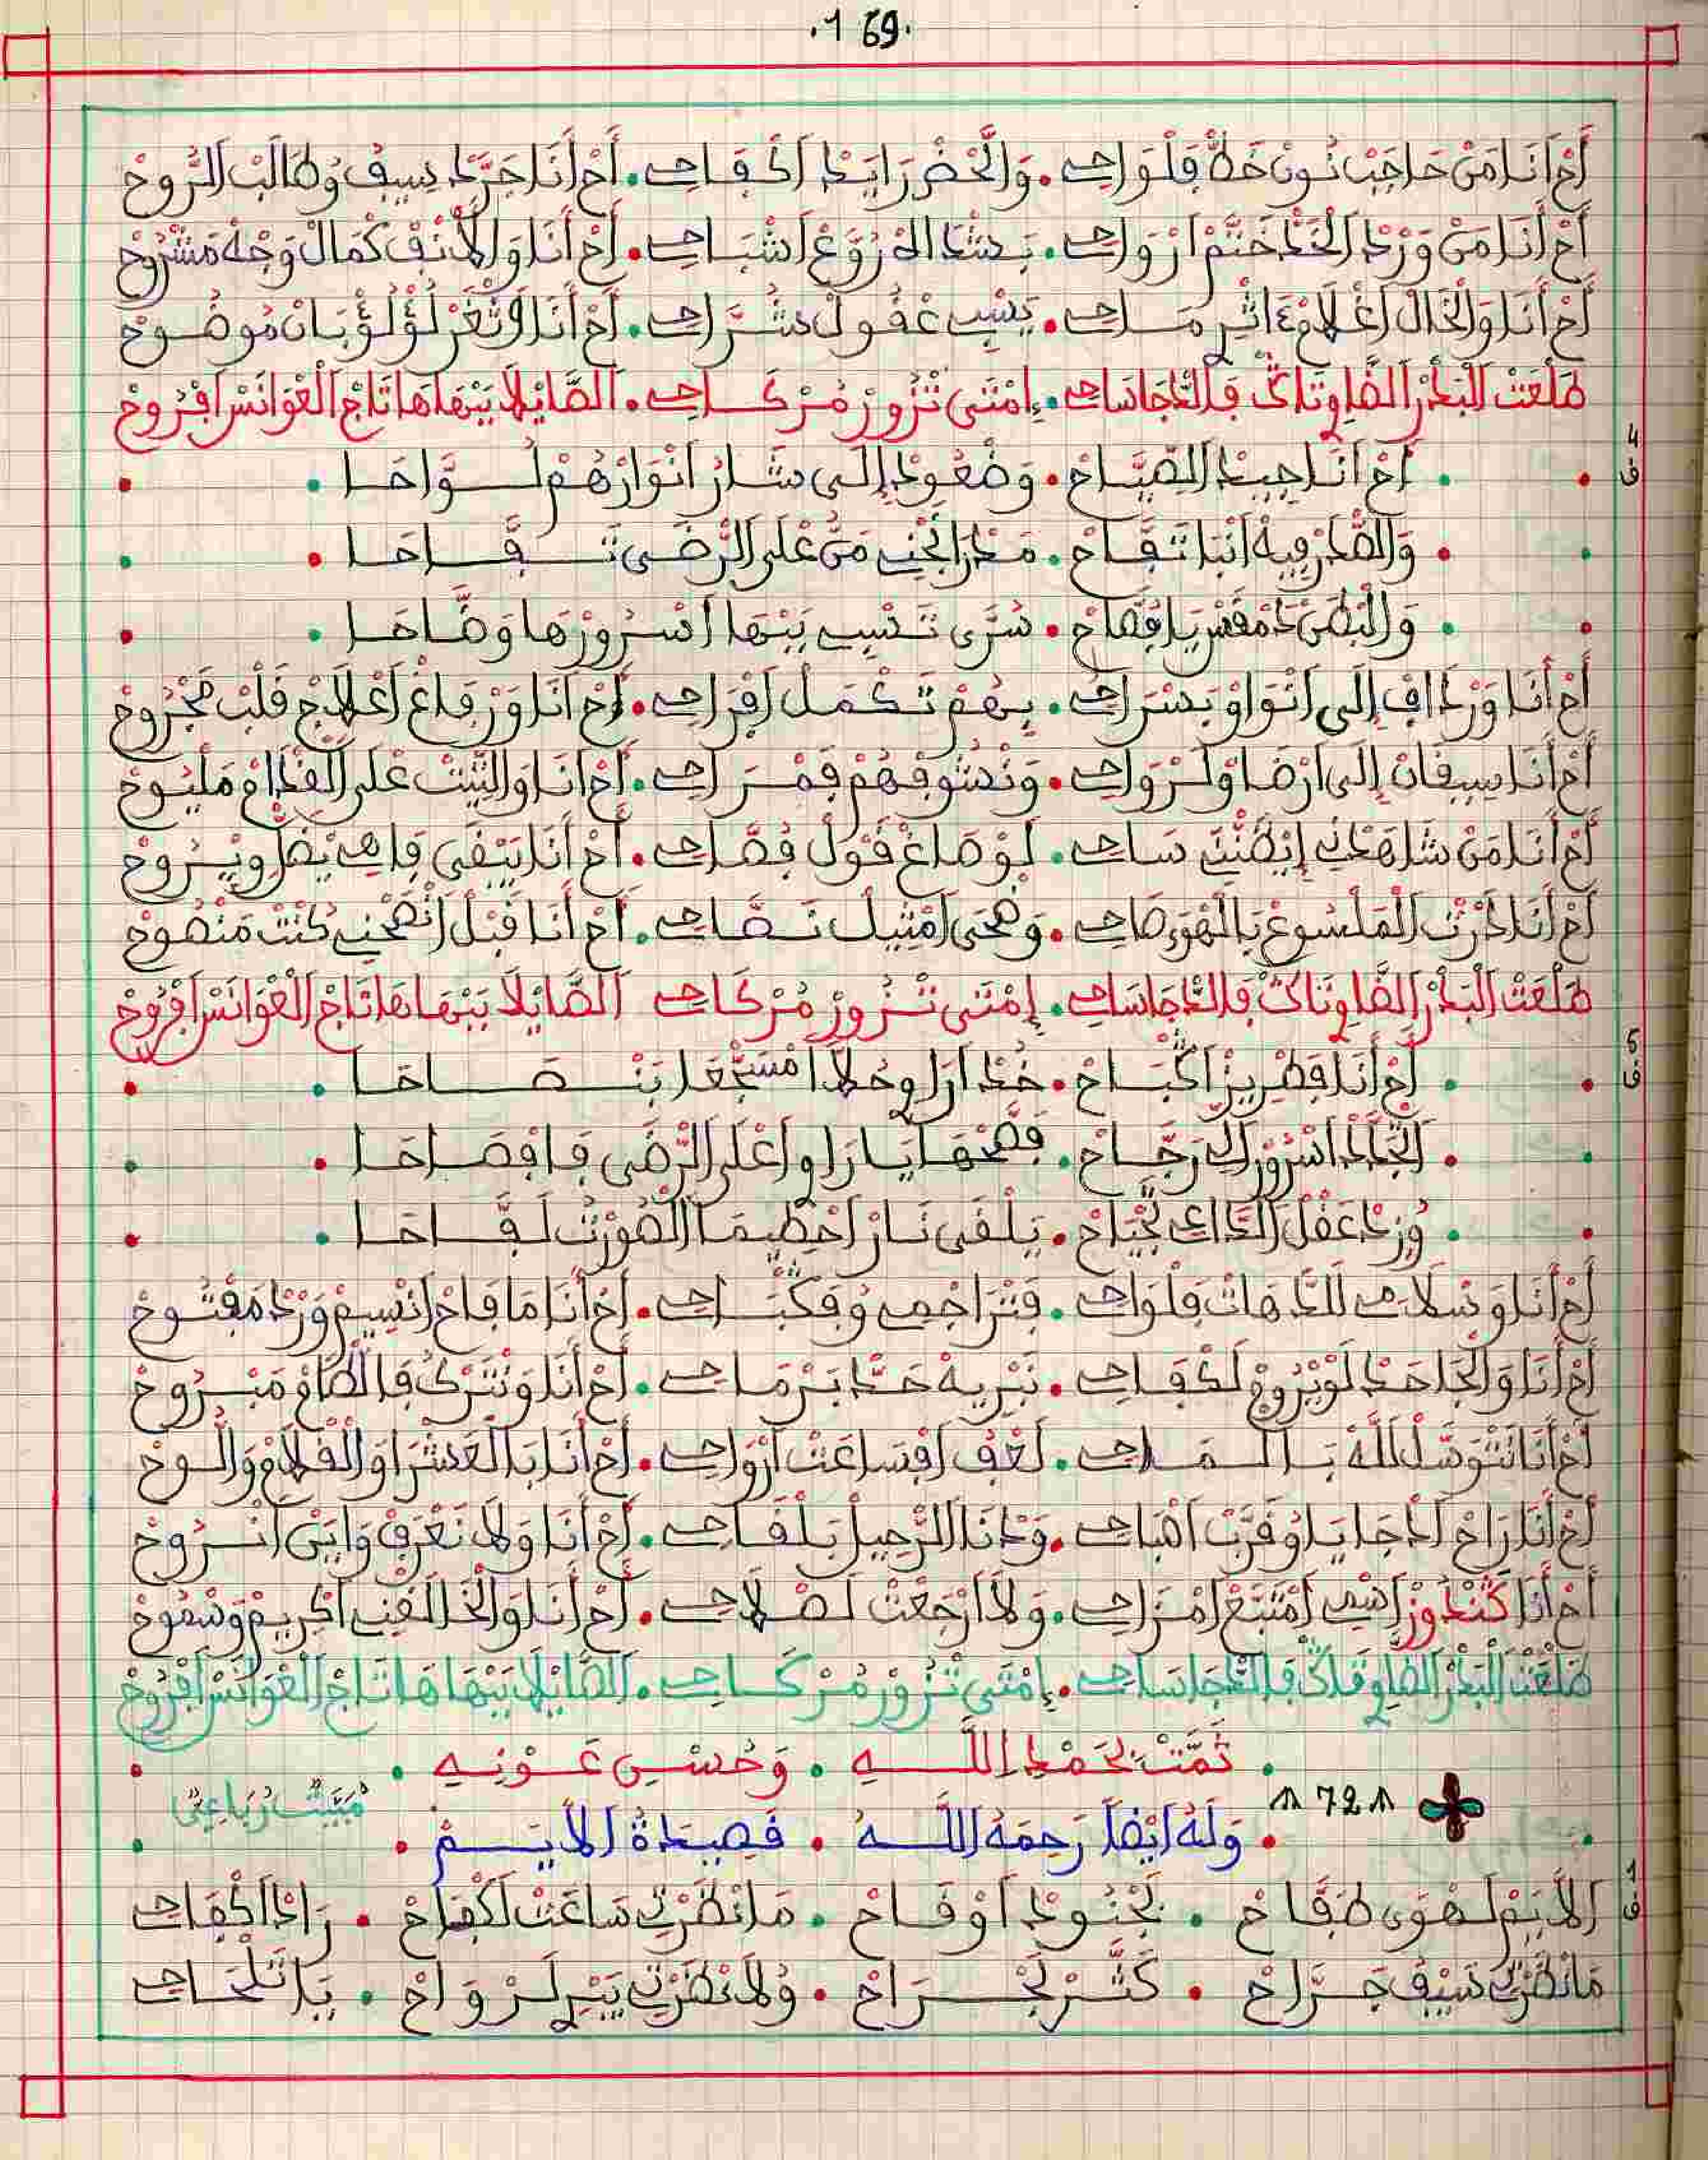 .169.
أَحْ أَنَا مَنْ حَاجَبْ نُونْ خَطّْ فَلْوَاحِي . وَالَّحْضْ رَايَدْ اَكْفَاحِي . أَحْ أَنَا جَرَّدْ سِيفُ وُطَالَبْ الرُّوحْ
أَحْ أَنَا مَنْ وَرْدْ الْخَدّْ خَتَّمْ اَرْوَاحِي . بَشْدَاهْ رُوَّعْ اَشْبَاحِي . أَحْ أَنَا وَالاَنْفْ كْمَالْ وَجْهْ مَشْرُوحْ
أَحْ أَنَا وَالْخَالْ اَغْلاَمْ مَاحِي . يَسْبِي عْقُولْ شُرَّاحِي . أَحْ أَنَا وَثْغَرْ لُؤْلُؤْ بَانْ مُوضُوحْ
طَلْعَتْ الْبَدْرْ الضَّاوِي فَالدّْجَا سَاحِي . اِمْتَى تْزُورْ مُرْكَاحِي . الصَّايْلَا بَبْهَاهَا تَاجْ الْعْوَانَسْ اَفْرُوحْ
4
ف
أَحْ أَنَا جِيدْ الصِّيَّاحْ . وَضْعُودْ إِلَى شَارُ اَنْوَارْهُمْ لَوَّاحَا
وَالصَّدْرْ فِيهْ اَنْبَا تَفَّاحْ . مَدْرَا نَجْنِي مَنْ عْلَى الرّْضَى تَفَّاحَا
وَالْبْطَنْ يَا فُصَّاحْ . سُرَّى تَسْبِي بَبْهَا اَسْرُورْهَا وَضَّاحَا
أَحْ أَنَا وَرْدَافْ إِلَى اَنْوَاوْ بَسْرَاحِي . بِهُمْ تَكْمَلْ اَفْرَاحِي . أَحْ أَنَا وَرْفَاغْ اَعْلَاجْ قَلْبْ مَجْرُوحْ
أَحْ أَنَا سِيقَانْ إِلَى اَرْضَاوْ لَرْوَاحِي . وَنْشُوفْهُمْ فَمْرَاحِي . أَحْ أَنَا وَالتِّيتْ عْلَى الْقْدَامْ مَلْيُوحْ
أَحْ أَنَا مَنْ شَاهَدْنِي إِيْظَنّْنِي سَاحِي . لَوْ صَاغْ قَوْلْ فُصَّاحِي . أَحْ أَنَا يَبْقَى فَاهِي يْظَلّْ وِيْرُوحْ
أَحْ أَنَا دَرْتْ الْمَلْسُوعْ بَالْهْوَى صَاحِي . وَضْحَى اَمْثِيلْ نَصَّاحِي . أَحْ أَنَا قْبَلْ اَنْصَحْنِي كُنْتْ مَنْصُوحْ
طَلْعَتْ الْبَدْرْ الضَّاوِي فَالدّْجَا سَاحِي . إِمْتَى تْزُورْ مُرْكَاحِي الصَّايْلَا بَبْهَاهَا تَاجْ الْعْوَانَسْ اَفْرُوحْ
5
ف
أَحْ أَنَا فَطْرِيزْ اَكْبَاحْ . خُدْ اَرَاوِي حُلَّا اَمْسَجّْعَا بَنْصَاحَا
الْجَاحْدْ اَسْرُورْ لَكْ رَجَّاحْ . فَضَّحْهَا يَا رَاوِي اَعْلَى الرّْضَى فَافْصَاحَا
وُزِدْ عَقْلْ الدَّاعِي نَجْيَاحْ . يَلْقَى نَارْ اَحْطِيمَا الْصُورْتُ لَفَّاحَا
أَحْ أَنَا وَسْلَامِي لَلدّْهَاتْ فَلْوَاحِي . فَتْرَاجْمِي وُفَكْبَاحِي . أَحْ أَنَا مَا فَاحْ اَنْسِيمْ وَرْدْ مَفْتُوحْ
أَحْ أَنَا وَالْجَاحَدْ لَوْ يْرُوجْ لَكْفَاحِي . نَبْرِيهْ حَدّْ بَرْمَاحِي . أَحْ أَنَا وَنْتَرْكُ فَالْطَّامْ مَبْرُوحْ
أَحْ أَنَا نَتْوَسَّلْ اللَّهْ بَالْمَاحِي . لَعْفُ اَفْسَاعَتْ اَرْوَاحِي . أَحْ أَنَا بَالْعَشْرَا وَالْقْلَامْ وَالُّوحْ
أَحْ أَنَا رَاحْ اَدْجَايَا وُقَرَّبْ اَصْبَاحِي . وَدْنَا الرّْحِيلْ بَلْقَاحِي . أَحْ أَنَا وَلَا نَعْرَفْ وَايَنْ اَنْرُوحْ
أَحْ أَنَا كَنْدُوزْ اَسْمِي اَمْتَبَّعْ اَمْزَاحِي . وَلَا اَرْجَعْتْ لَصْلَاحِي . أَحْ أَنَا وَالْخَالْقْنِي اَكْرِيمْ وَسْمُوحْ
طَلْعَتْ الْبَدْرْ الضَّاوِي فَالدّْجَا سَاحِي . إِمْتَى تْزُورْ مُرْكَاحِي . الصَّايْلَا بَبْهَاهَا تَاجْ الْعْوَانَسْ اَفْرُوحْ
تَمَّتْ بِحَمْدِ اللَّهِ . وَحُسْنِ عَوْنِهِ
72
مُبَيَّتْ رُبَاعِي
وَلَهُ اَيْضًا رَحِمَهُ اللَّهُ . قَصِيدَةُ الاَيَمْ
1
ف
اَلاَيَمْ لَهْوَى طَفَّاحْ . بَجْنُودْ اَوْقَاحْ . مَا نْظَرْتِي سَاعَتْ لَكْفَاحْ . رَادْ اَكْفَاحِي
مَا نْظَرْتِي سَيْفْ جَرَّاحْ . كَثّْرْ لَجْرَاحْ . وُلَا نْظَرْتِي بَيْرْ لَرْوَاحْ . يَا تَلْحَاحِي